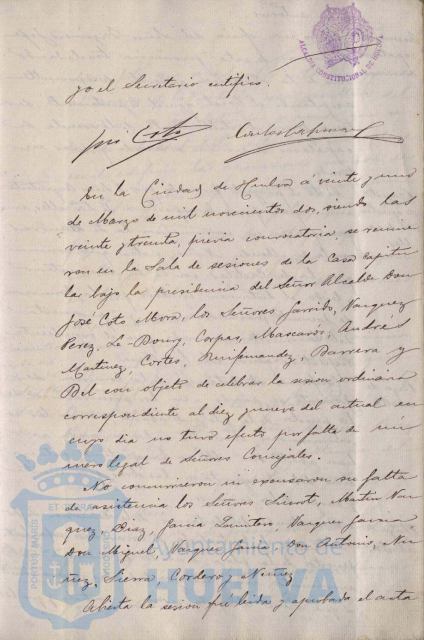 ALCALDIA CONSTITUCIONAL DE HUELVA
yo el Secretario certifico.
José Coto
En la Ciudad de Huelva á veinte y uno
de Marzo de mil novecientos dos, siendo las
veinte y treinta, previa convocatoria, se reunie
ron en la Sala de sesiones de la Casa Capitu
lar bajo la presidencia del Señor Alcalde Don
José Coto Mora, los Señores Garrido, Vazquez
Perez, Le-Bourg, Corpas, Mascarós, Andrés
Martinez, Cortés, Ruifernandez, Barrera y
Bel con objeto de celebrar la sesion ordinaria
correspondiente al diez y nueve del actual en
cuyo dia no tuvo efecto por falta de nú
mero legal de Señores Concejales.
No concurrieron ni excusaron su falta
de asistencia los Señores Martin Vaz
quez, Diaz, Garcia Quintero, Vazquez Garcia
Don Miguel, Vazquez Garcia Don Antonio, Nu
ñez, Sierra, Cordero y Nuñez
Abierta la sesion fué leida y aprobada el acta
Ayuntamiento de
HUELVA